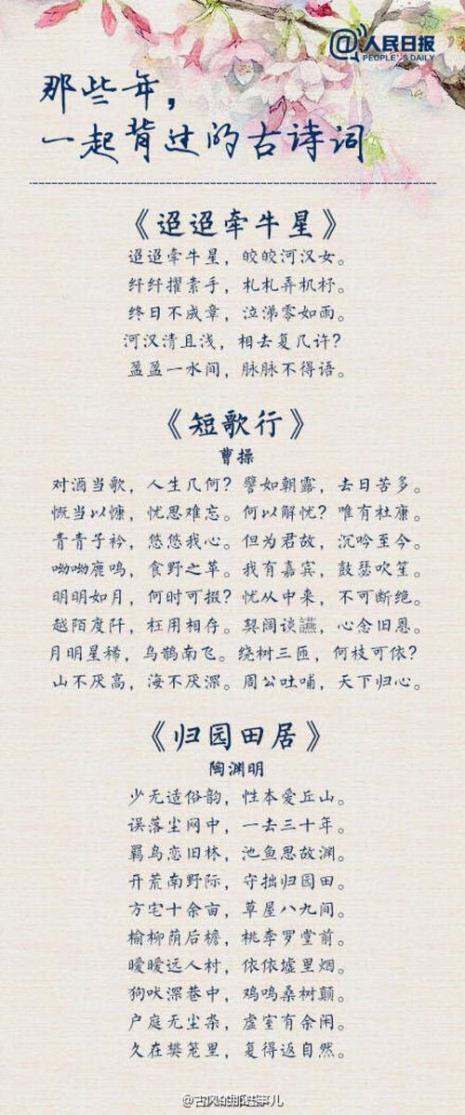 @人民日报
PEOPLE'S DAILY
那些年，
一起背过的古诗词
《迢迢牵牛星》
迢迢牵牛星，皎皎河汉女。
纤纤擢素手，札札弄机杼。
终日不成章，泣涕零如雨。
河汉清且浅，相去复几许？
盈盈一水间，脉脉不得语。
《短歌行》
曹操
对酒当歌，人生几何？譬如朝露，去日苦多。
慨当以慷，忧思难忘。何以解忧？唯有杜康。
青青子衿，悠悠我心。但为君故，沉吟至今。
呦呦鹿鸣，食野之苹。我有嘉宾，鼓瑟吹笙。
明明如月，何时可掇？忧从中来，不可断绝。
越陌度阡，枉用相存。契阔谈讌，心念旧恩。
月明星稀，乌鹊南飞。绕树三匝，何枝可依？
山不厌高，海不厌深。周公吐哺，天下归心。
《归园田居》
陶渊明
少无适俗韵，性本爱丘山。
误落尘网中，一去三十年。
羁鸟恋旧林，池鱼思故渊。
开荒南野际，守拙归园田。
方宅十余亩，草屋八九间。
榆柳荫后檐，桃李罗堂前。
暧暧远人村，依依墟里烟。
狗吠深巷中，鸡鸣桑树颠。
户庭无尘杂，虚室有余闲。
久在樊笼里，复得返自然。